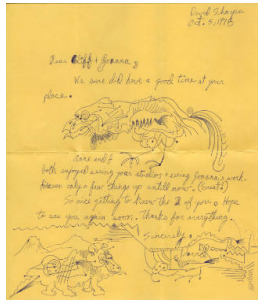 Dear Cliff + Joanna,
We sure did have a good time at your
place.
both enjoyed seeing your studios + seeing Joanna's work.
only a few things up until now.
So nice getting to know the 2 of you. Hope
to see you again soon. Thanks for everything.
Sincerely,
David